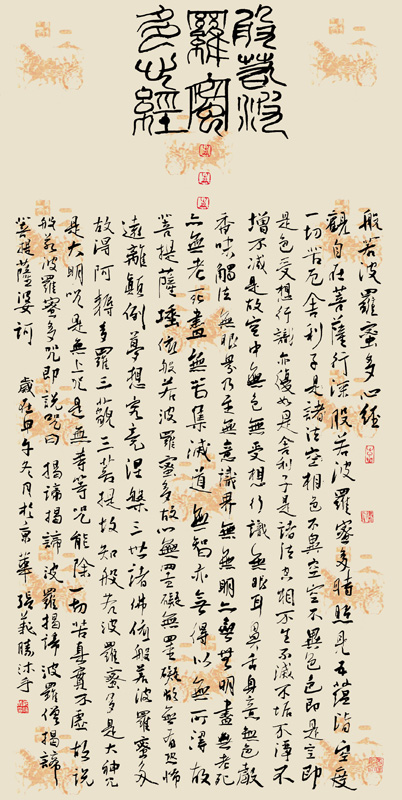 般若波
羅蜜
多心經
般若波羅蜜多心經
觀自在菩薩行深般若波羅蜜多時照見五蘊皆空度
一切苦厄舍利子是諸法空相色不異空空不異色色即是空即
是色受想行識亦復如是舍利子是諸法空相不生不滅不垢不淨不
增不減是故空中無色無受想行識無眼耳鼻舌身意無色聲
香味觸法無眼界乃至無意識界無無明亦無無明盡無老死
亦無老死盡無苦集滅道無智亦無得以無所得故
菩提薩埵依般若波羅蜜多故心無罣礙無罣礙故無有恐怖
遠離顛倒夢想究竟涅槃三世諸佛依般若波羅蜜多
故得阿耨多羅三藐三菩提故知般若波羅蜜多是大神咒
是大明咒是無上咒是無等等咒能除一切苦真實不虛故說
般若波羅蜜多咒即說咒曰 揭諦揭諦波羅揭諦波羅僧揭諦
菩提薩婆訶 歲在甲午冬月於京華張義勝沐手